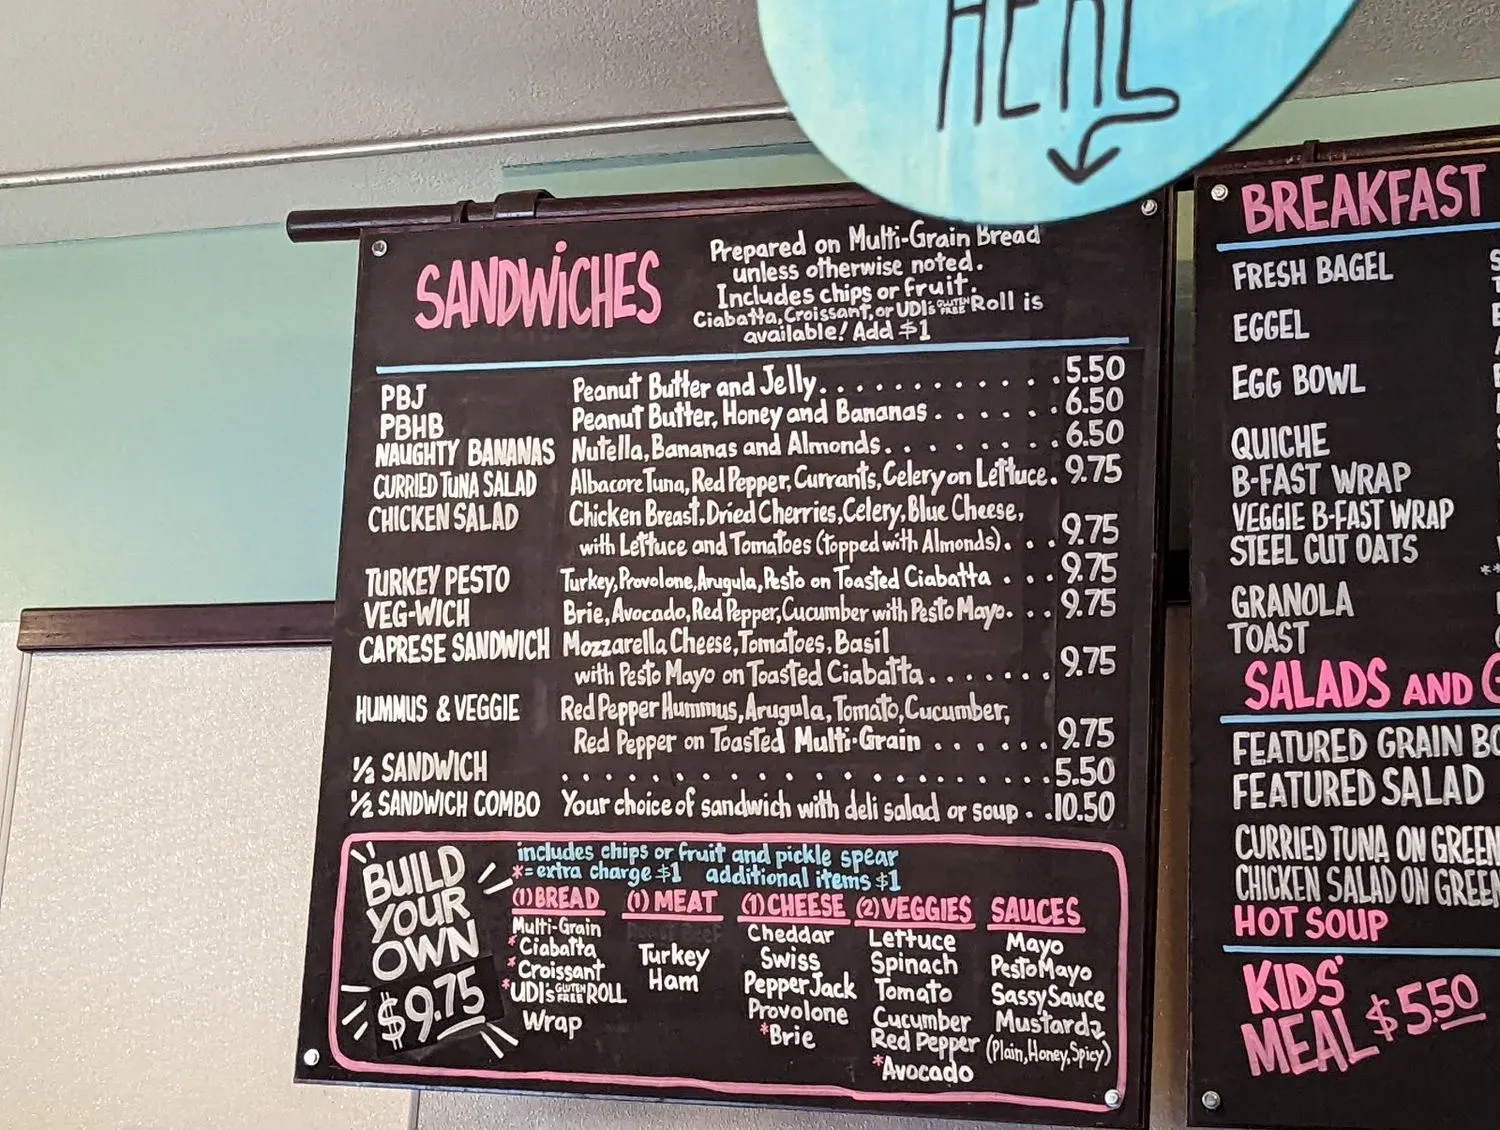 HERE
SANDWICHES
Prepared on Multi-Grain Bread
unless otherwise noted.
Includes chips or fruit.
Ciabatta, Croissant, or UDI's GLUTEN FREE Roll is
available! Add $1
PBJ Peanut Butter and Jelly............5.50
PBHB Peanut Butter, Honey and Bananas......6.50
NAUGHTY BANANAS Nutella, Bananas and Almonds........6.50
CURRIED TUNA SALAD Albacore Tuna, Red Pepper, Currants, Celery on Lettuce.9.75
CHICKEN SALAD Chicken Breast, Dried Cherries, Celery, Blue Cheese,
with Lettuce and Tomatoes (topped with Almonds)...9.75
TURKEY PESTO Turkey, Provolone, Arugula, Pesto on Toasted Ciabatta...9.75
VEG-WICH Brie, Avocado, Red Pepper, Cucumber with Pesto Mayo...9.75
CAPRESE SANDWICH Mozzarella Cheese, Tomatoes, Basil
with Pesto Mayo on Toasted Ciabatta.......9.75
HUMMUS & VEGGIE Red Pepper Hummus, Arugula, Tomato, Cucumber,
Red Pepper on Toasted Multi-Grain......9.75
1/2 SANDWICH ......................5.50
1/2 SANDWICH COMBO Your choice of sandwich with deli salad or soup..10.50
BUILD
YOUR
OWN
$9.75
includes chips or fruit and pickle spear
*=extra charge $1 additional items $1
(1) BREAD
Multi-Grain
*Ciabatta
*Croissant
*UDI's GLUTEN FREE ROLL
Wrap
(1) MEAT
Turkey
Ham
(1) CHEESE
Cheddar
Swiss
PepperJack
Provolone
*Brie
(2) VEGGIES
Lettuce
Spinach
Tomato
Cucumber
Red Pepper
*Avocado
SAUCES
Mayo
Pesto Mayo
Sassy Sauce
Mustardz
(Plain, Honey, Spicy)
BREAKFAST
FRESH BAGEL
EGGEL
EGG BOWL
QUICHE
B-FAST WRAP
VEGGIE B-FAST WRAP
STEEL CUT OATS
GRANOLA
TOAST
SALADS AND
FEATURED GRAIN
FEATURED SALAD
CURRIED TUNA ON GREEN
CHICKEN SALAD ON GREEN
HOT SOUP
KIDS'
MEAL $5.50